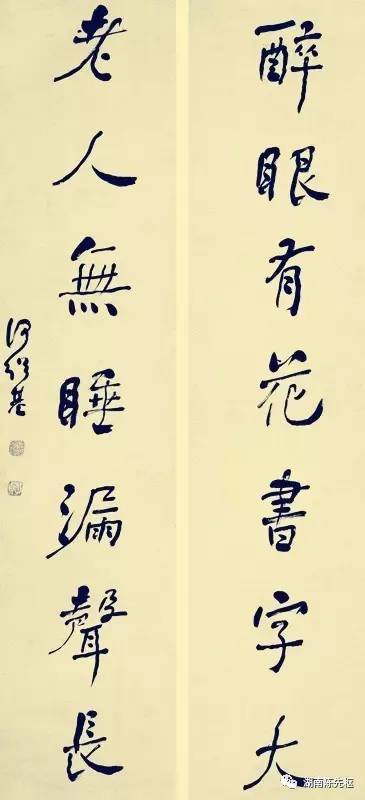 醉眼有花書字大
老人無睡漏聲長
何紹基
湖南陈先枢